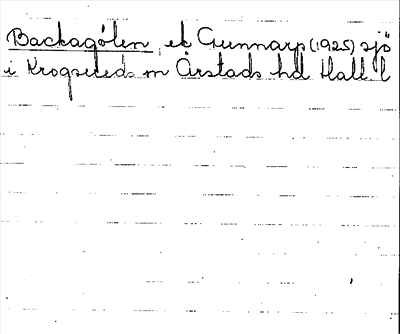 Backagölen, ek Gunnarp (1925) sjö
i Krogsereds sn Årstads hd Hall. l